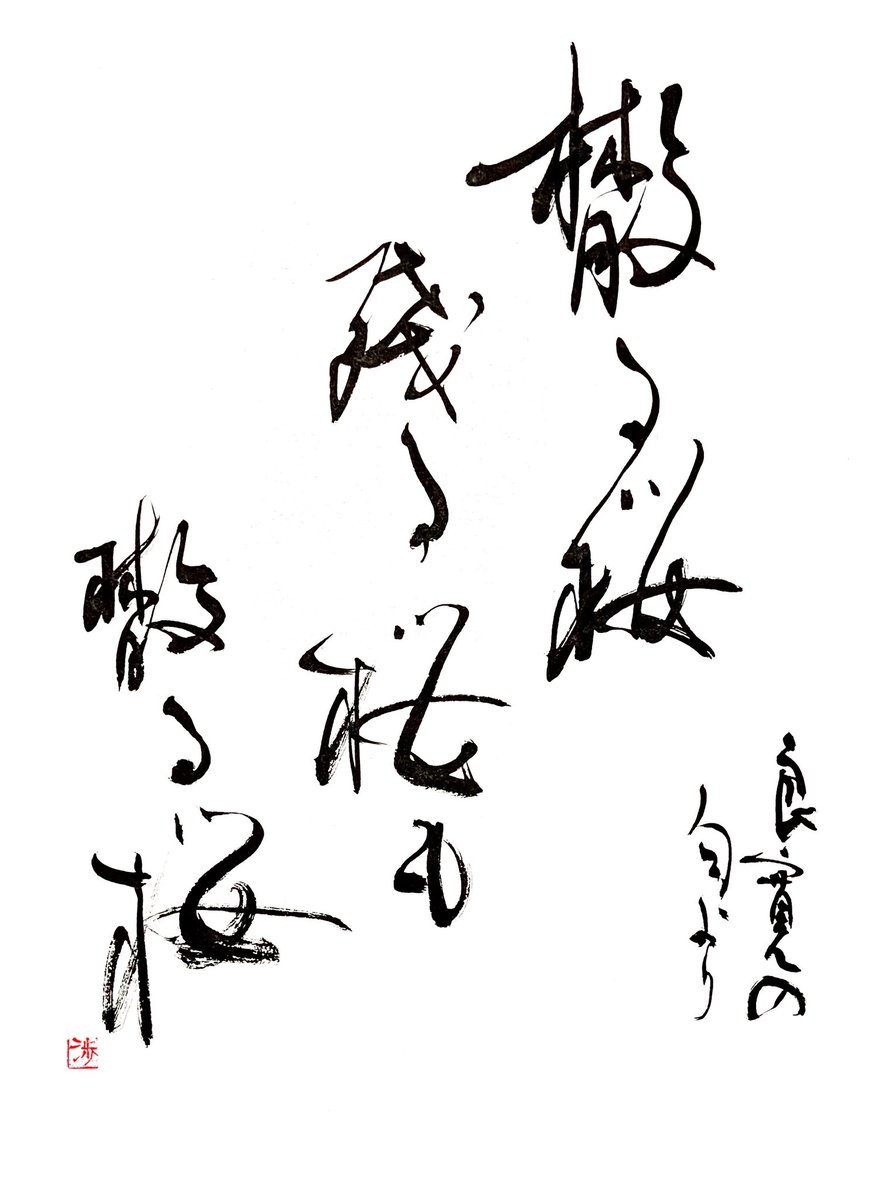 散る桜
残る桜も
散る桜
良寛の
句より
渉